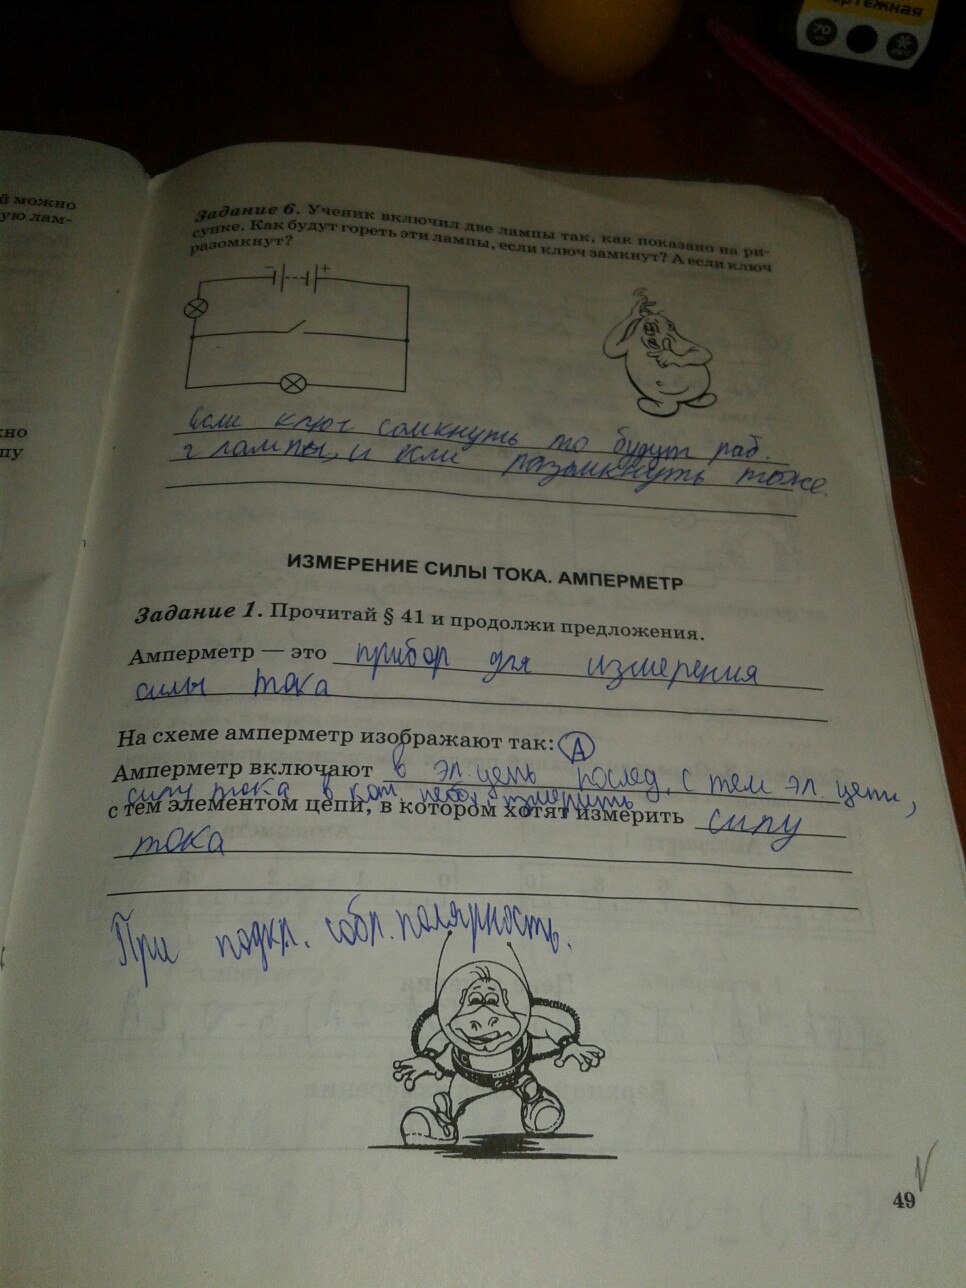 ртёжная
70
й можно
ую лам-
Задание 6. Ученик включил две лампы так, как показано на ри-
сунке. Как будут гореть эти лампы, если ключ замкнут? А если ключ
разомкнут?
− +
Если ключ сомкнуть то будут раб.
2 лампы, и если разомкнуть тоже.
но
пу
ИЗМЕРЕНИЕ СИЛЫ ТОКА. АМПЕРМЕТР
Задание 1. Прочитай § 41 и продолжи предложения.
Амперметр — это прибор для измерения
силы тока
На схеме амперметр изображают так: A
Амперметр включают в эл. цепь послед. с тем эл. цепи,
силу тока в кот. небох. измерить
с тем элементом цепи, в котором хотят измерить силу
тока
При подкл. собл. полярность.
49